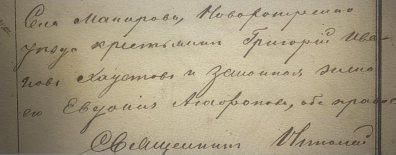 Села Макарова, Новохоперскаго
уезда крестьянин Григорий Ива-
нов Хаустов и законная жена
его Евдокия, оба правос
Священник